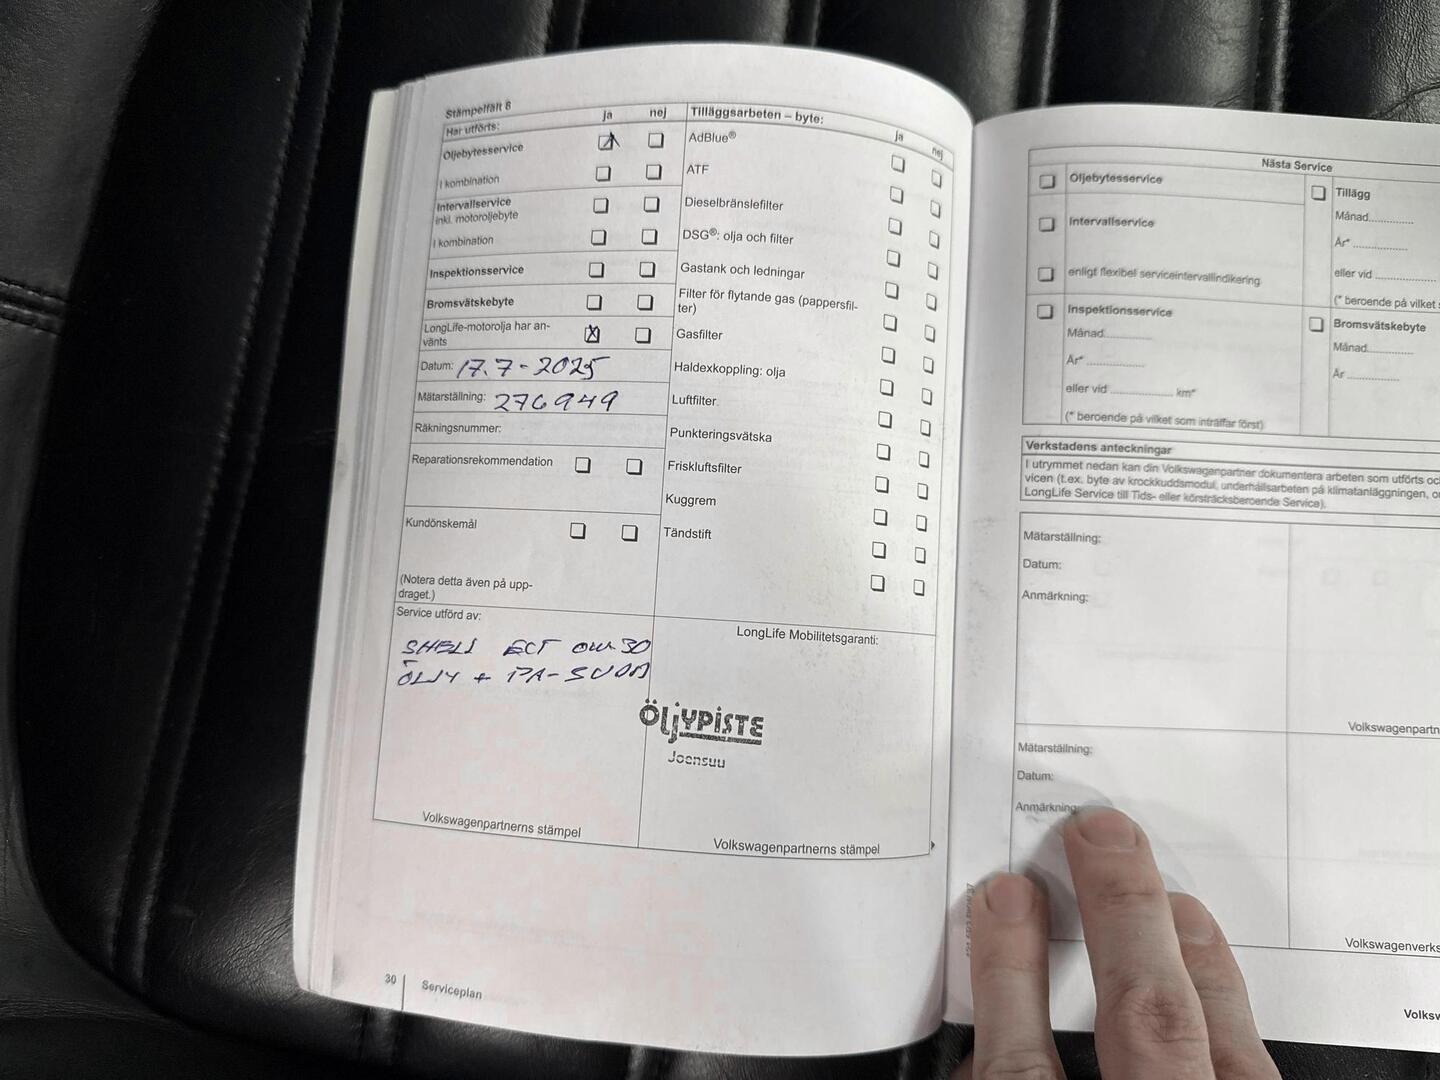 Stämpelfält 8
Har utförts: ja nej
Oljebytesservice
I kombination
Intervallservice
inkl. motoroljebyte
I kombination
Inspektionsservice
Bromsvätskebyte
LongLife-motorolja har an-
vänts
Datum: 17.7-2025
Mätarställning: 276949
Räkningsnummer:
Reparationsrekommendation
Kundönskemål
(Notera detta även på upp-
draget.)
Service utförd av:
SHELL ECT 0W-30
ÖLJY +
Volkswagenpartnerns stämpel
Tilläggsarbeten – byte: ja nej
AdBlue®
ATF
Dieselbränslefilter
DSG®: olja och filter
Gastank och ledningar
Filter för flytande gas (pappersfil-
ter)
Gasfilter
Haldexkoppling: olja
Luftfilter
Punkteringsvätska
Friskluftsfilter
Kuggrem
Tändstift
LongLife Mobilitetsgaranti:
ÖljYPiSTE
Joensuu
Volkswagenpartnerns stämpel
30 Serviceplan
Nästa Service
Oljebytesservice
Intervallservice
enligt flexibel serviceintervallindikering
Inspektionsservice
Månad............
År* ................
eller vid .................... km*
(* beroende på vilket som inträffar först)
Tillägg
Månad............
År* ................
eller vid ................
(* beroende på vilket
Bromsvätskebyte
Månad............
År ..............
Verkstadens anteckningar
I utrymmet nedan kan din Volkswagenpartner dokumentera arbeten som utförts
vicen (t.ex. byte av krockkuddsmodul, underhållsarbeten på klimatanläggningen,
LongLife Service till Tids- eller körsträcksberoende Service).
Mätarställning:
Datum:
Anmärkning:
Volkswagenpartn
Mätarställning:
Datum:
Anmärkning:
Volkswagenverks
Volksw